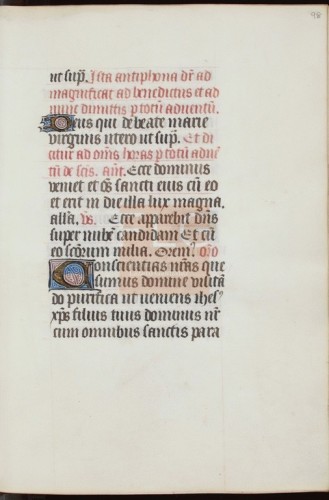 98
ut sup̄. Ista antiphona dr̄ ad
magnificat ad benedictus et ad
nunc dimittis p totū aduentū.
Deus qui de beate marie
virginis utero ut sup̄. Et di
citur ad om̄s horas p totū aduē
tū de scīs. añt. Ecce dominus
veniet et oēs sancti eius cū eo
et erit in die illa lux magna.
all'a. v̄s. Ecce apparebit dn̄s
super nubē candidam Et cū
eo scōrum milia. Orem'. oro
Conscientias nr̄as que
sumus domine visita
do purifica ut veniens ihes'
xp̄s filius tuus dominus nr̄
cum omnibus sanctis para